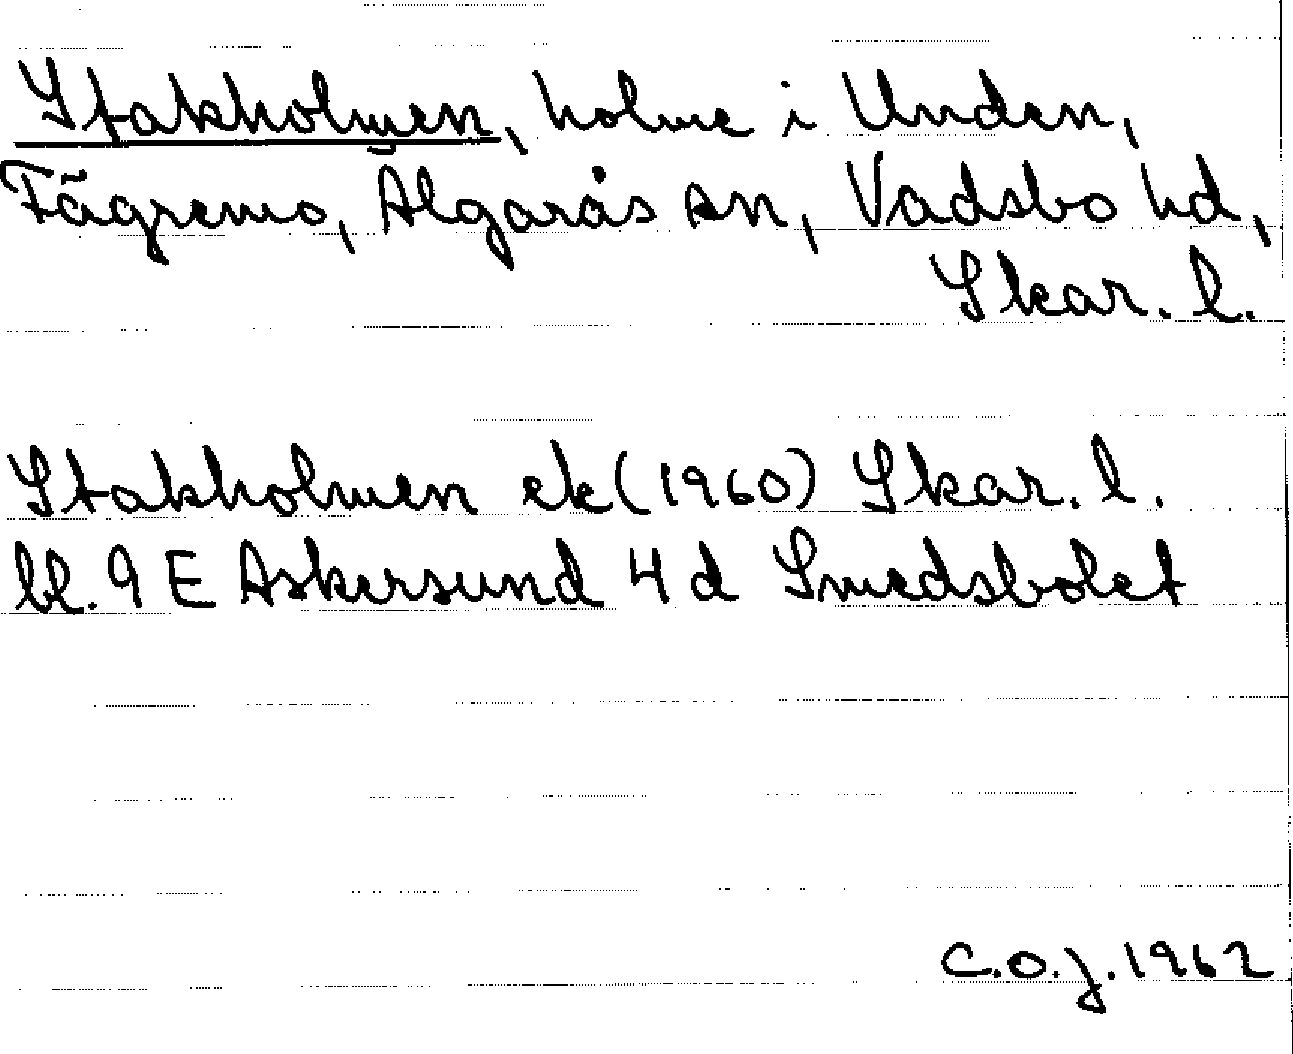 Stakholmen, holme i Unden,
Fägremo, Älgarås sn, Vadsbo hd,
Skar. l.
Stakholmen ek (1960) Skar. l.
bl. 9 E Askersund 4 d Smedsbolet
C.O.J. 1962